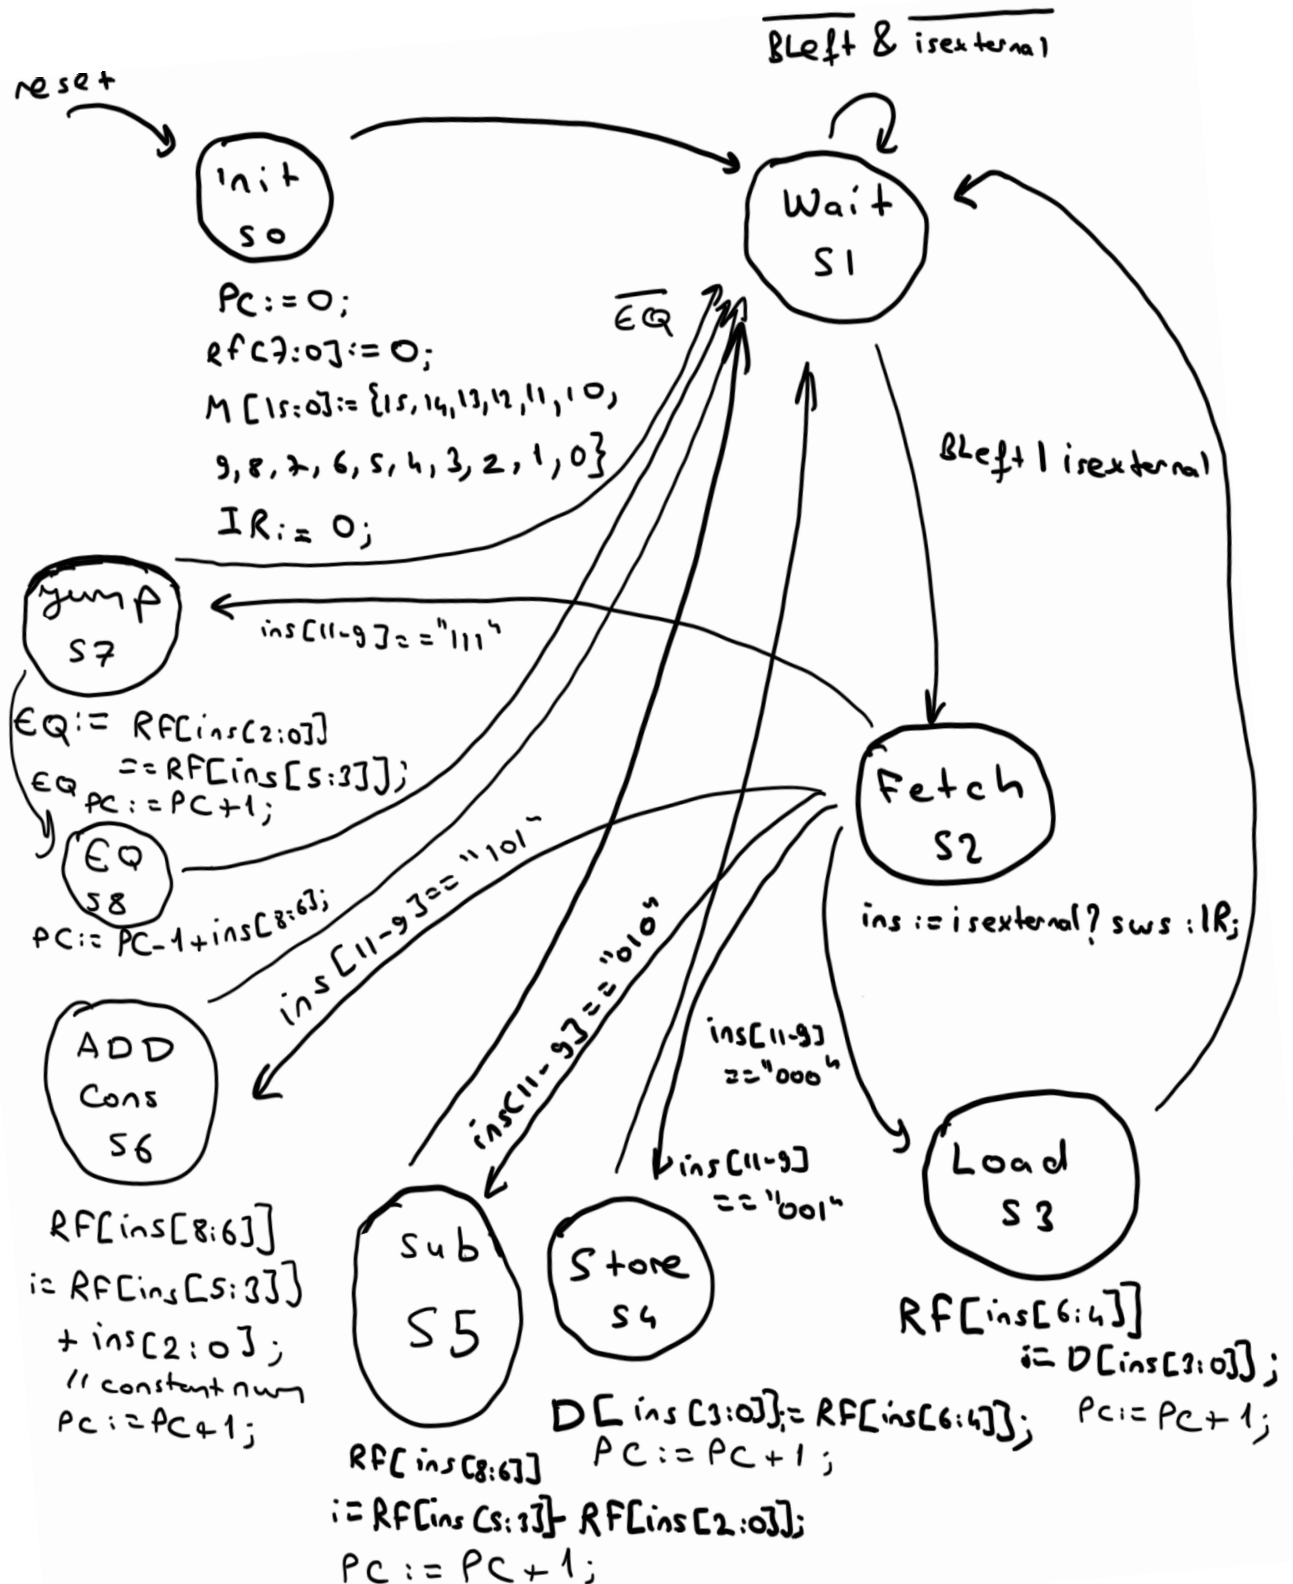 BLeft & isexternal
reset
Init
S0
Wait
S1
PC:=0;
RF[7:0]:=0;
M[15:0]:={15,14,13,12,11,10,
9,8,7,6,5,4,3,2,1,0}
IR:=0;
EQ
BLeft | isexternal
Jump
S7
ins[11-9]=="111"
EQ:= RF[ins[2:0]]
==RF[ins[5:3]];
EQ
PC:=PC+1;
EQ
S8
PC:= PC-1+ins[8:6];
Fetch
S2
ins := isexternal? sws : IR;
ins[11-9]=="101"
ins[11-9]=="010"
ins[11-9]
=="000"
ins[11-9]
=="001"
ADD
Cons
S6
RF[ins[8:6]]
:= RF[ins[5:3]]
+ ins[2:0];
// constant num
PC:=PC+1;
Sub
S5
RF[ins[8:6]]
:=RF[ins[5:3]]-RF[ins[2:0]];
PC:= PC+1;
Store
S4
D[ins[3:0]]:=RF[ins[6:4]];
PC:=PC+1;
Load
S3
RF[ins[6:4]]
:= D[ins[3:0]];
PC:=PC+1;